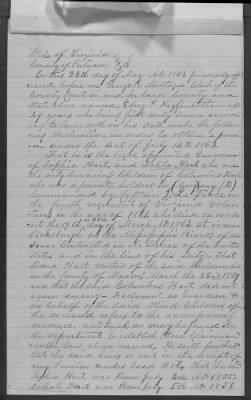 State of Virginia
County of Putnam } SS
On this 25th day of May AD 1863 personally app
eared before me George A. Montague Clerk of the
County Court in and for said County and
State above named, Eloy F. Higginbotham
years who being first duly sworn accord
ing to law, doth on his oath, make the follow
ing declaration, in order to obtain a pen
sion under the act of July 14th 1862
That he is the legal appointed Guardian
of Sophia Hart, and Hart who are
the only surviving Children of Columbus Hart
who was a private soldier in Company (B)
Commanded by Captain J. L.
the fourth regiment of Virginia Volun
teers in the war of 1861 who died on
the 19th day of March AD 1863 at or near
Vicksburgh on the Mississippi River of dis
ease Contracted in the service of the United
States and in the line of his duty; that
Hart mother of the said Children died
in the County of Mason, March the 22d 1859
and that the said Columbus Hart did not
again marry. Declarant as Guardian &
on behalf of the said Minor Children of
the deceased refers to the accompanying
evidence, and such as may be found in
the department to establish their claim
under the law above named, he doth further
that the said being is not in the receipt of
any Pension under said Act. That the
Sophia Hart was Born July 1855
Hart was Born July 5th AD 1856